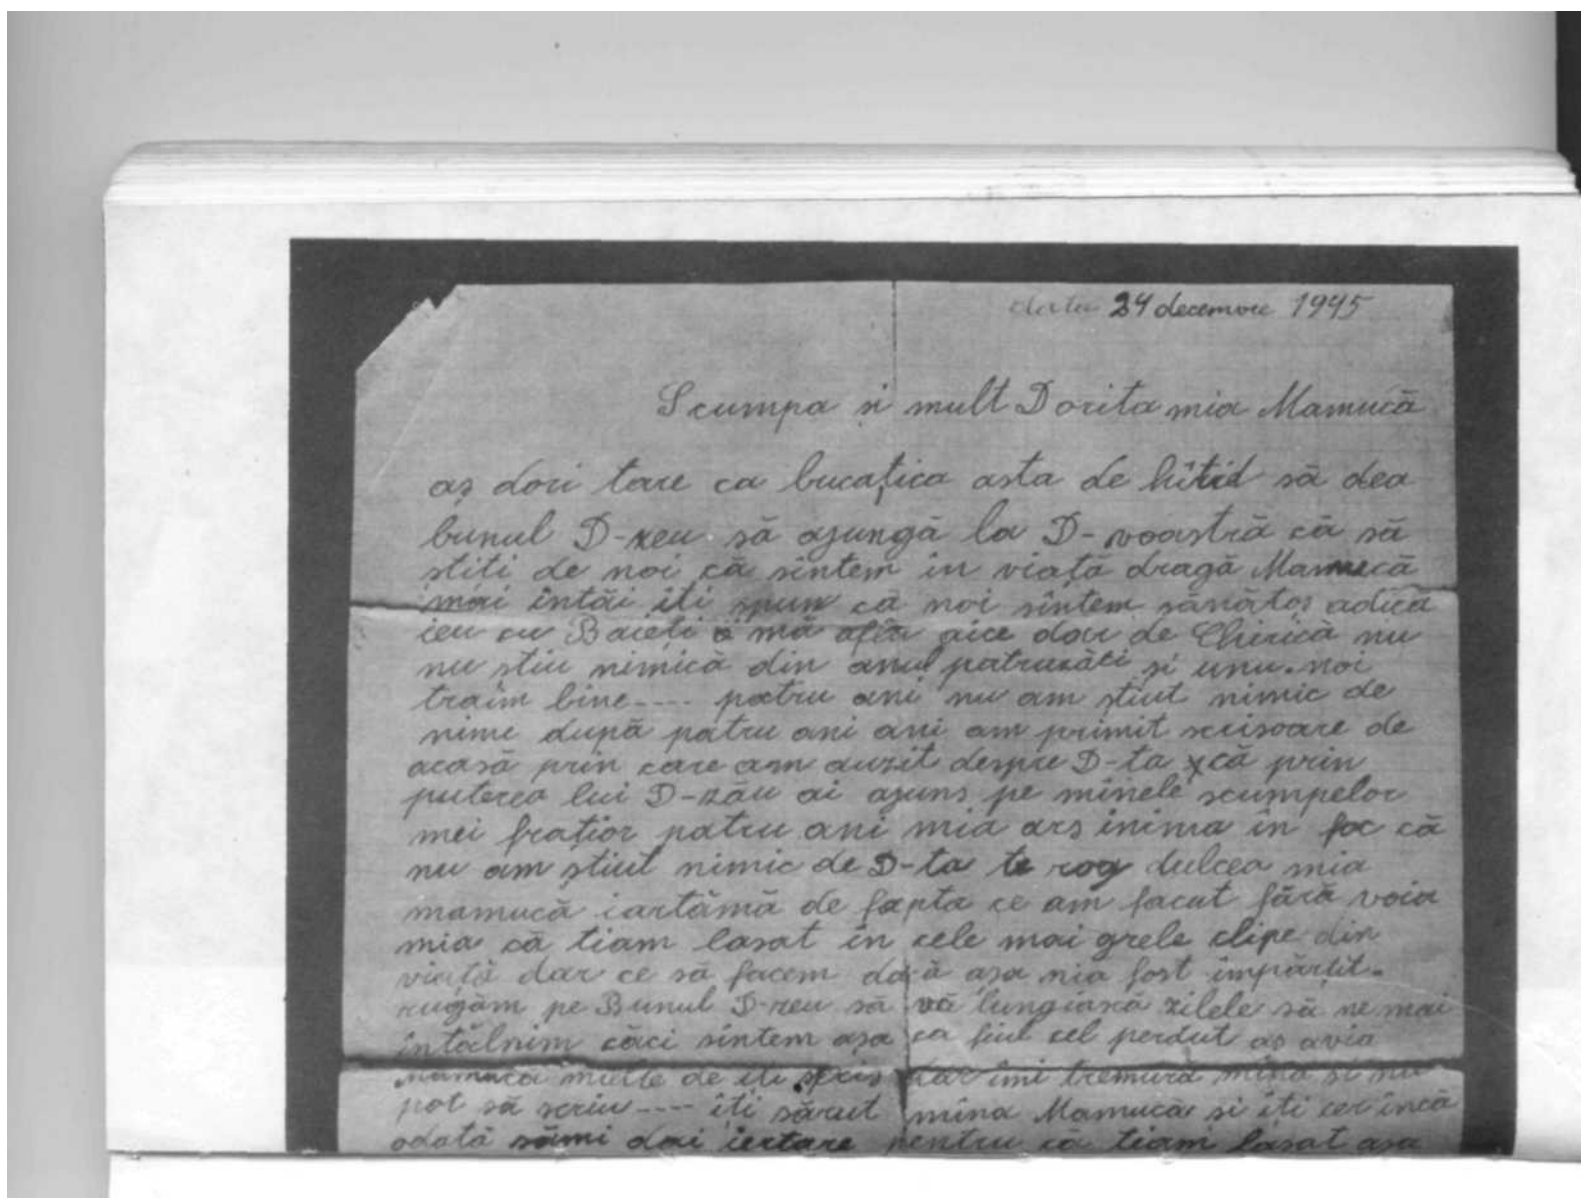 data 24 decemvrie 1945
Scumpa si mult Dorita mia Mamucă
aș dori tare ca bucațica asta de hîtid să dea
bunul D-zeu să ajungă la D-voastră că să
stiti de noi că sintem in viață dragă Mamucă
mai întăi iti spun că noi sîntem sănătoș adica
ieu cu Baieți mă aflu aice dar de Chirică nu
nu stiu nimică din anul patruzăci și unu. noi
traim bine---- patru ani nu am știut nimic de
nime după patru ani ani am primit scrisoare de
acasă prin care am auzit despre D-ta că prin
puterea lui D-zău ai ajuns pe minele scumpelor
mei frațior patru ani mia ars inima in foc că
nu am știut nimic de D-ta te rog dulcea mia
mamucă iartămă de fapta ce am facut fără voia
mia că tiam lasat in cele mai grele clipe din
viață dar ce să facem dacă așa nia fost impărțit.
rugăm pe Bunul D-zeu să vă lungiască zilele să ne mai
întâlnim căci sintem așa ca fiul cel perdut aș avia
Mamuca multe de iti scris dar imi tremură mina si nu
pot să scriu---- iti sărut mina Mamucă si iti cer incă
odată sămi dai iertare pentru că tiam lasat asa